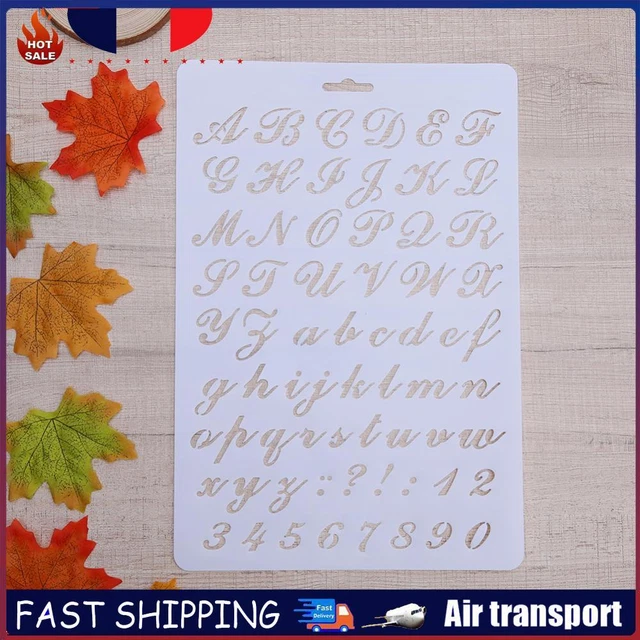 HOT
SALE
A B C D E F
G H I J K L
M N O P Q R
S T U V W X
Y Z a b c d e f
g h i j k l m n
o p q r s t u v w
x y z : ? ! : 1 2
3 4 5 6 7 8 9 0
FAST SHIPPING
Fast
Delivery
Air transport